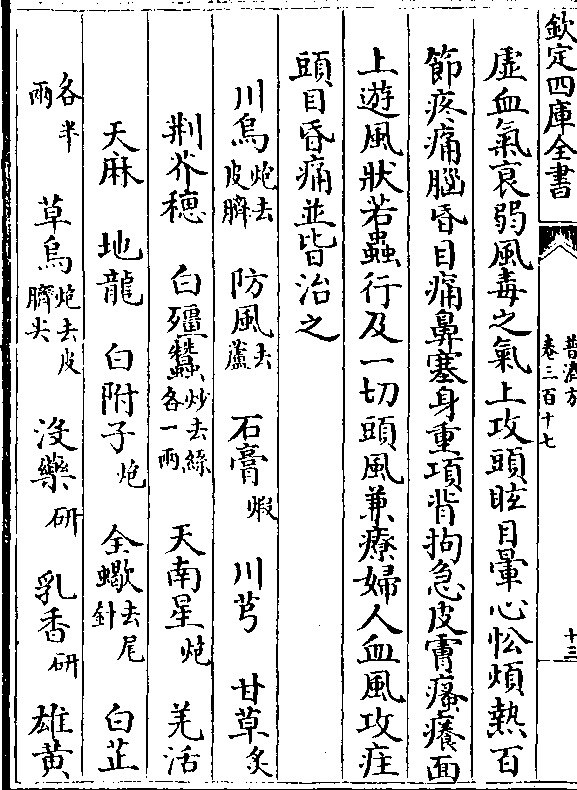 欽定四庫全書
普濟方
卷三百十七
十三
虛血氣衰弱風毒之氣上攻頭眩目暈心忪煩熱百
節疼痛腦昏目痛鼻塞身重項背拘急皮膚瘙癢面
上遊風狀若蟲行及一切頭風兼療婦人血風攻疰
頭目昏痛並皆治之
川烏炮去皮臍 防風去蘆 石膏煅 川芎 甘草炙
荆芥穗 白殭蠶炒去絲各一兩 天南星炮 羌活
天麻 地龍 白附子炮 全蠍去尾針 白芷
各半兩 草烏炮去皮臍尖 没藥研 乳香研 雄黃